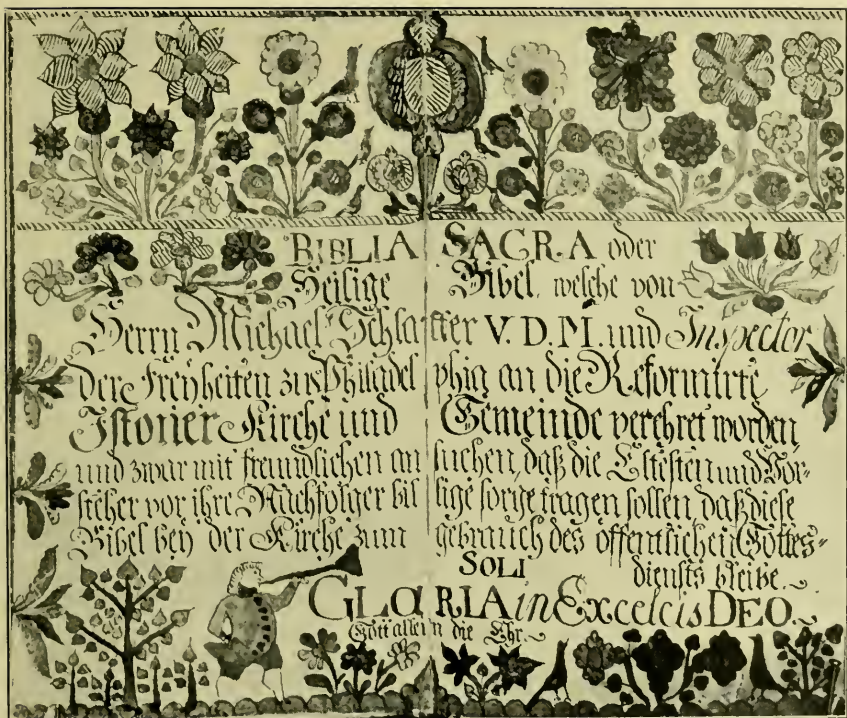 BIBLIA SACRA oder
Heilige Bibel, welche von
Herrn Michael Schlatter V. D. M. und Inspector
der Freyheiten zu Philadelphia an die Reformirte
Kirche und Gemeinde verehret worden,
und zwar mit freundlichen ansuchen, daß die Eltesten und Vor-
steher vor ihre Nachfolger billige sorge tragen sollen, daß diese
Bibel bey der Kirche zum gebrauch des öffentlichen Gottes-
diensts bleibe.
SOLI
GLORIA in Excelcis DEO.
Gott allein die Ehr.